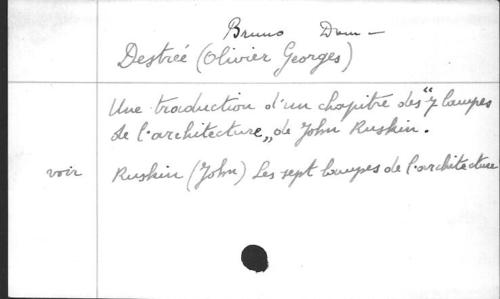 Bruno Dom -
Destrée (Olivier Georges)
Une traduction d'un chapitre des "7 lampes
de l'architecture" de John Ruskin.
voir Ruskin (John) Les sept lampes de l'architecture